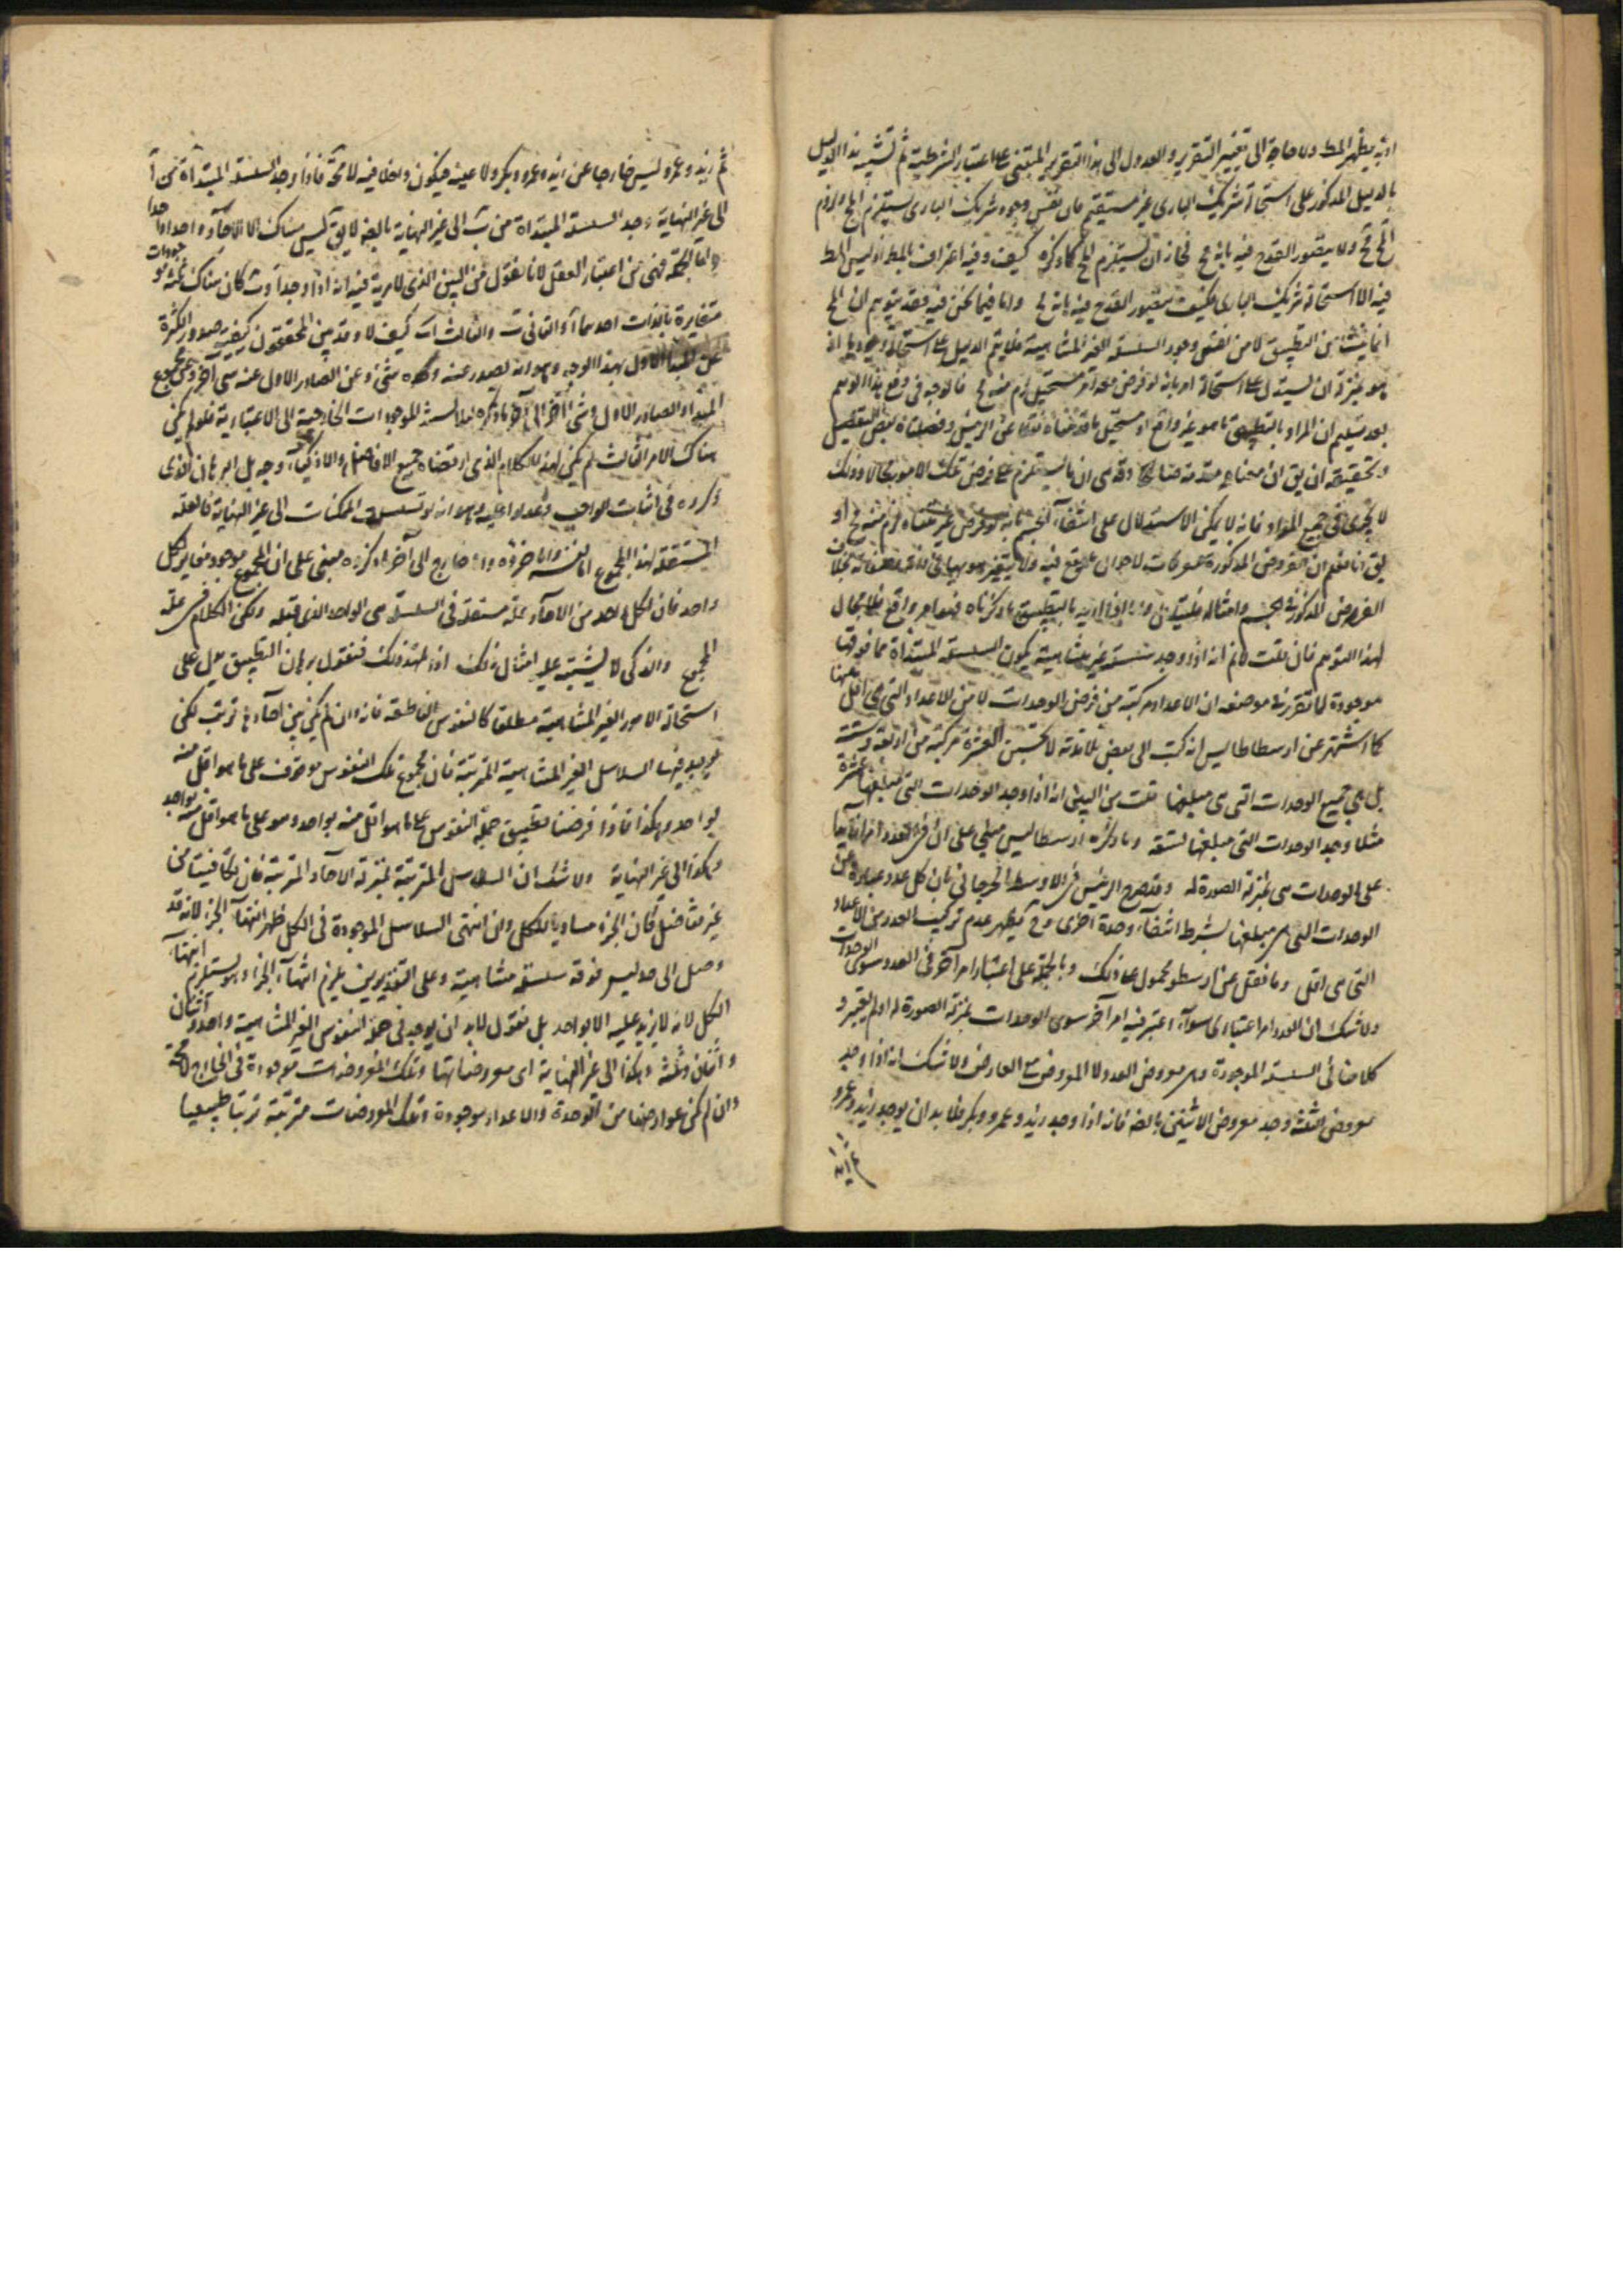 يظهر المط ولا حاجة الى تغيير التقرير والعدول الى هذا التقرير المبتنى على اعتبار الشرطية ثم تشبيه هذا الدليل
بالدليل المذكور على استحالة شريك البارى غير مستقيم فان نفس وجود شريك البارى يستلزم المح ولزوم
المح مح ولا يتصور القدح فيه بانه مح فجاز ان يستلزم المح كما ذكره كيف وفيه اعتراف بالمط اذ ليس المط
فيه الا استحالة شريك البارى فكيف يتصور القدح فيه بانه مح واما فيما نحن فيه فقد يتوهم ان المح
انما ينشأ من التطبيق لا من نفس وجود السلسلة الغير المتناهية فلا يتم الدليل على استحالة وجودها اذ
هو بمنزلة ان يستدل على استحالة امر بانه لو فرض معه امر مستحيل لزم منه مح فالوجه فى دفع هذا الوهم
بعد تسليم ان المراد بالتطبيق ما هو غير واقع او مستحيل ما قدمناه نقلا عن الرئيس وفصلناه بعض التفصيل
وتحقيقه ان يق ان معناه مقدمة وهى ان ما يستلزم على فرض تلك الامور محالا وذلك
لا يجرى فى جميع المواد فانه لا يمكن الاستدلال على انتفاء الجسم بانه لو فرض غير متناه لزم منه مح او
يق انا نعلم ان الفروض المذكورة
الفروض المذكور فى الجسم وامثاله واما اذا اريد بالتطبيق ما ذكرناه فهو امر واقع فلا مجال
لهذا التوهم فان قلت لا نم انه اذا وجد سلسلة غير متناهية يكون السلسلة المبتدأة مما فوقها
موجودة لما تقرر فى موضعه ان الاعداد مركبة من فرض الوحدات لا من الاعداد التى هى اقل منها
كما اشتهر عن ارسطاطاليس انه كتب الى بعض تلامذته لا تحسبن العشرة مركبة من اربعة وستة
بل هى جميع الوحدات التى هى مبلغها قلت من البين انه اذا وجد الوحدات التى مبلغها عشرة
مثلا وجد الوحدات التى مبلغها تسعة وما ذكره ارسطاليس مبنى على ان فى العدد امرا زائدا
على الوحدات هى بمنزلة الصورة له وقد صرح الرئيس فى الاوسط الجرجانى بان كل عدد عبارة عن
الوحدات التى هى مبلغها بشرط انتفاء وحدة اخرى وح يظهر عدم تركيب العدد من الاعداد
التى هى اقل وما نقل عن ارسطو محمول على ذلك وبالجملة على اعتبار امر آخر فى العدد سوى الوحدات
ولا شك ان العدد امر اعتبارى سواء اعتبر فيه امر آخر سوى الوحدات بمنزلة الصورة له او لم يعتبر و
كلامنا فى السلسلة الموجودة وهى معروض العدد لا المعروض مع العارض ولا شك انه اذا وجد
معروض الثلثة وجد معروض الاثنين بالضرورة فانه اذا وجد زيد وعمرو وبكر فلا بد ان يوجد زيد وعمرو
ثم زيد وعمرو ليس خارجا عن زيد وعمرو وبكر ولا عينه فيكون داخلا فيه لا محة فاذا وجد السلسلة المبتدأة من آ
الى غير النهاية وجد السلسلة المبتدأة من ب الى غير النهاية بالضرورة لا يق ليس هناك الا الآحاد واحدا واحدا
واما الجملة فهى من اعتبار العقل لانا نقول من البين الذى لا مرية فيه انه اذا وجد آ و ب كان هناك ثلثة موجودات
متغايرة بالذات احدها آ والثانى ب والثالث آ ب كيف لا وقد بين المحققون كيفية صدور الكثرة
عن المبدأ الاول بهذا الوجه وهو انه يصدر عنه وحده شئ وعن الصادر الاول عنه شئ آخر وعن مجموع
المبدأ والصادر الاول شئ آخر الى آخر ما ذكره الموجودات الخارجية الى الاعتبارية فلو لم يكن
هناك الامر الثالث لم يكن لهذا الكلام الذى ارتضاه جميع الافاضل والاذكياء وجه بل البرهان الذى
ذكروه فى اثبات الواجب واعتمدوا عليه وهو انه لو تسلسلت الممكنات الى غير النهاية فالعلة
المستقلة لهذا المجموع اما نفسه واما جزؤه واما خارج الى آخر ما ذكروه مبنى على ان المجموع موجود مغاير لكل
واحد فان لكل واحد من الآحاد علة مستقلة فى السلسلة هى الواحد الذى قبله ولكن الكلام فى علة
المجموع والذكى لا يشتبه عليه امثال ذلك اذا تمهد ذلك فنقول برهان التطبيق يدل على
استحالة الامور الغير المتناهية مطلقا كالنفوس الناطقة فانه وان لم يكن بين آحادها ترتب لكن
يوجد فيها السلاسل الغير المتناهية المترتبة فان مجموع تلك النفوس موقوف على ما هو اقل منه
بواحد وهكذا فاذا فرضنا تطبيق جملة النفوس على ما هو اقل منه بواحد وهو على ما هو اقل منه بواحد
وهكذا الى غير النهاية ولا شك ان السلاسل المترتبة بمنزلة الآحاد المترتبة فان تكافئتا من
غير تفاضل كان الجزء مساويا للكل وان انتهى السلاسل الموجودة فى الكل ظهر انتهاء الجزء لانه قد
وصل الى حد ليس فوقه سلسلة متناهية وعلى التقديرين يلزم انتهاء الجزء وهو يستلزم انتهاء
الكل لانه لا يزيد عليه الا بواحد بل نقول لا بد ان يوجد فى هذه النفوس الغير المتناهية واحد و اثنان
و اثنان وثلثة وهكذا الى غير النهاية اى معروضاتها وتلك المعروضات موجودة فى الخارج لا محة
وان لم يكن عوارضها من الوحدة والاعداد موجودة وتلك المعروضات مترتبة ترتبا طبيعيا